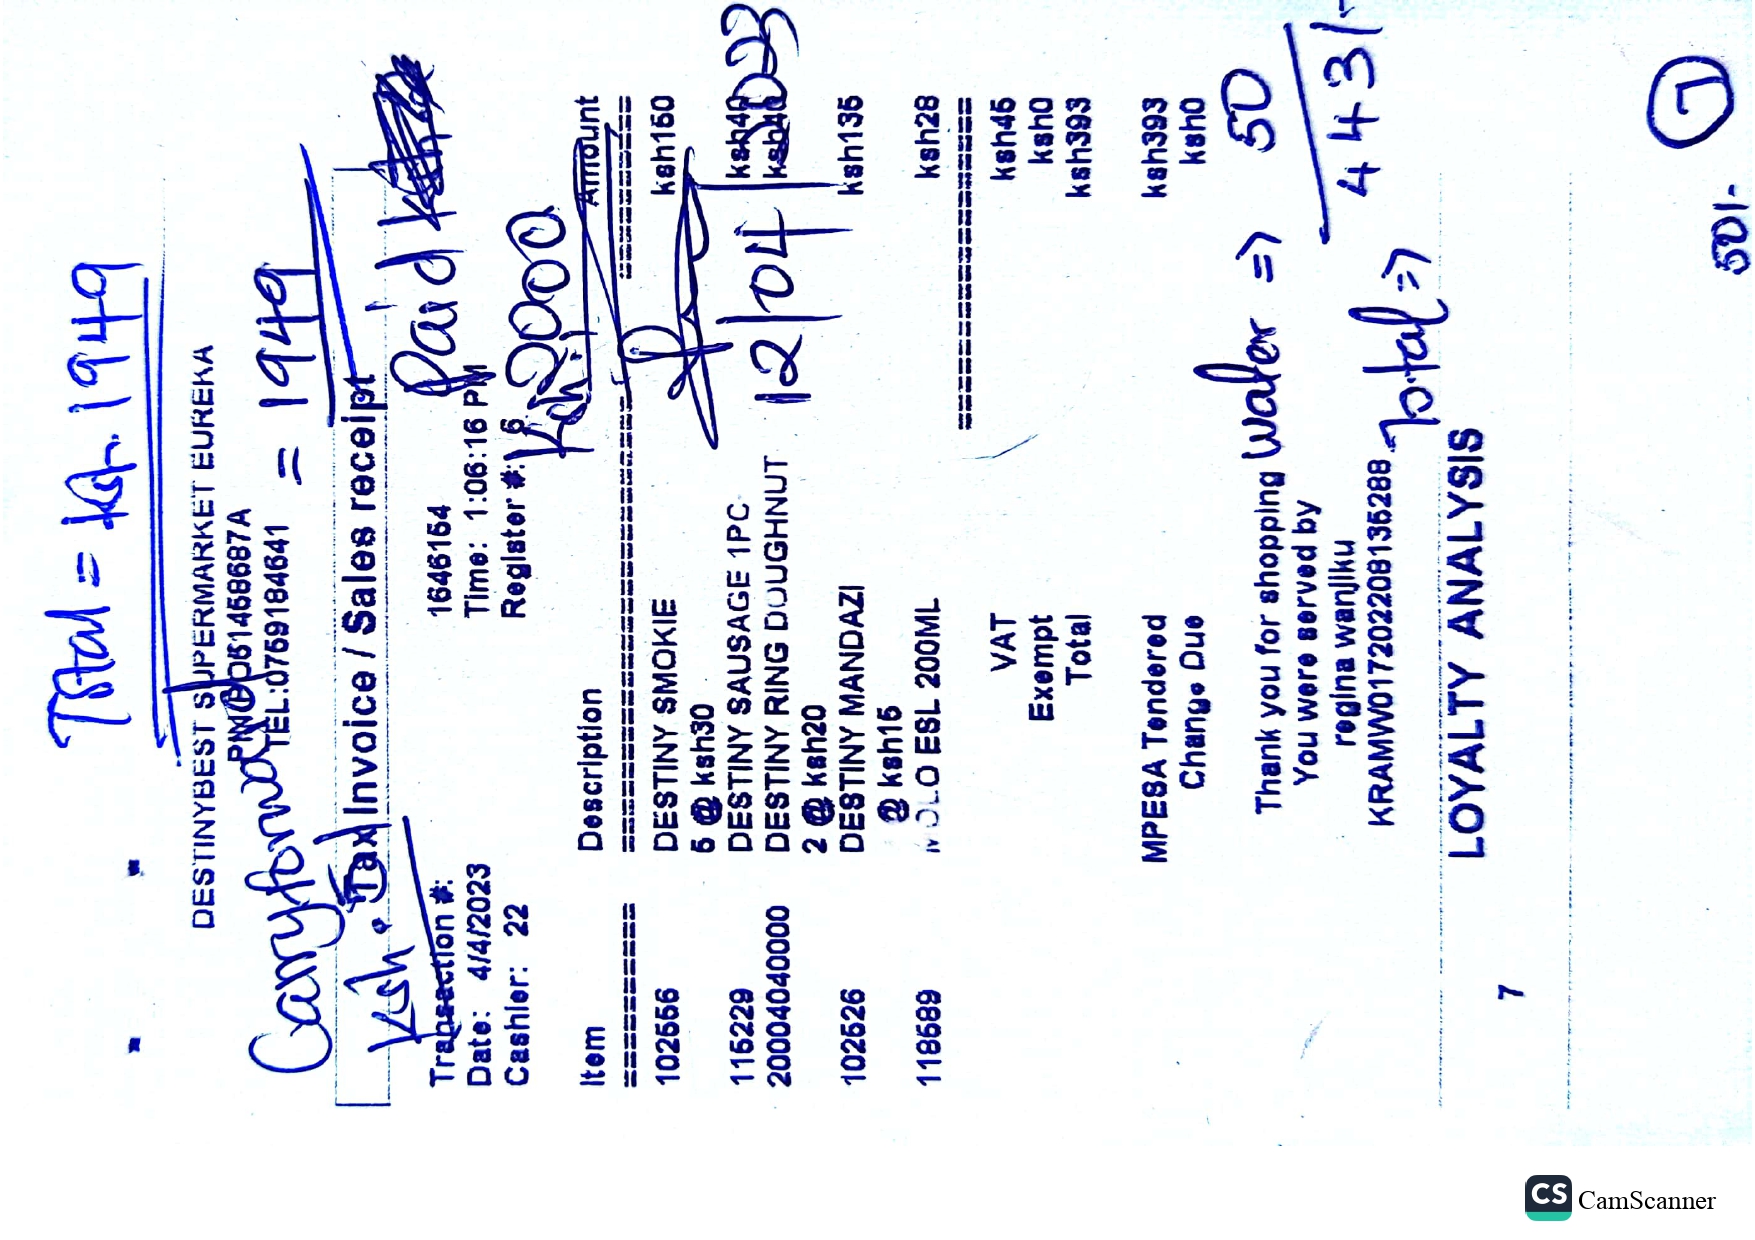 Total = ksh. 1949
DESTINYBEST SUPERMARKET EUREKA
PIN P051458687A
TEL:0759184641
Carryforward = 1949
Tax Invoice / Sales receipt
Ksh. 51
Paid
Transaction #: 1646154
Date: 4/4/2023 Time: 1:06:16 PM
Cashier: 22 Register #: 6
Ksh. 2000
Item Description Amount
102556 DESTINY SMOKIE ksh150
5 @ ksh30
115229 DESTINY SAUSAGE 1PC ksh40
20004040000 DESTINY RING DOUGHNUT ksh40
2 @ ksh20
12/04/2023
102526 DESTINY MANDAZI ksh135
@ ksh15
118589 MOLO ESL 200ML ksh28
VAT ksh45
Exempt ksh0
Total ksh393
MPESA Tendered ksh393
Change Due ksh0
Thank you for shopping
Water => 50
You were served by
regina wanjiku
KRAMW017202208135288
Total => 443/-
LOYALTY ANALYSIS
7
7
50/-
CS CamScanner